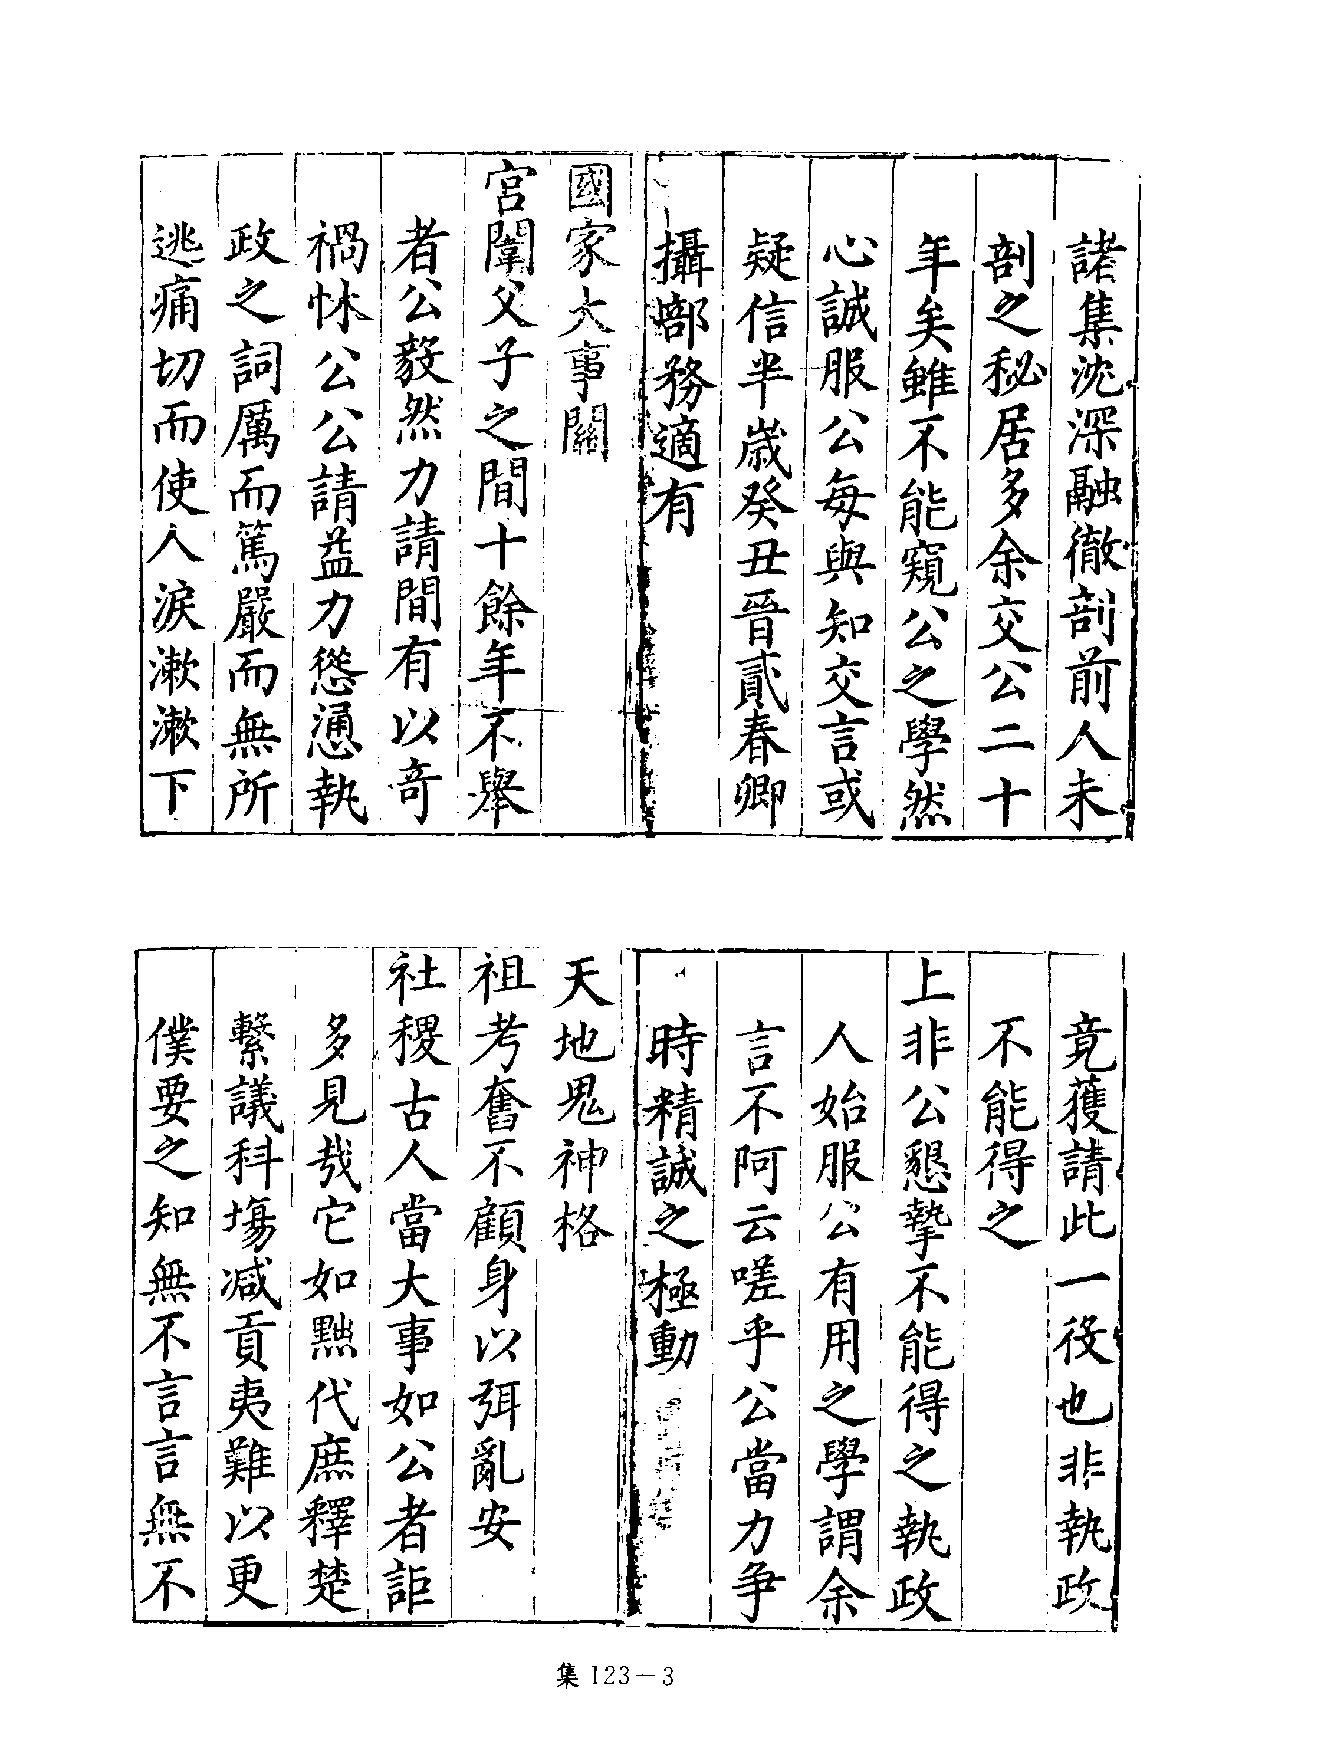 諸集沈深融徹剖前人未
剖之秘居多余交公二十
年矣雖不能窺公之學然
心誠服公每與知交言或
疑信半歲癸丑晉貳春卿
攝部務適有
國家大事關
宮闈父子之間十餘年不舉
者公毅然力請間有以奇
禍怵公公請益力慫慂執
政之詞厲而篤嚴而無所
逃痛切而使人淚漱漱下
竟獲請此一役也非執政
不能得之
上非公懇摯不能得之執政
人始服公有用之學謂余
言不阿云嗟乎公當力争
時精誠之極動
天地鬼神格
祖考奮不顧身以弭亂安
社稷古人當大事如公者詎
多見哉它如黜代庶釋楚
繫議科塲減貢夷難以更
僕要之知無不言言無不
集 123－3